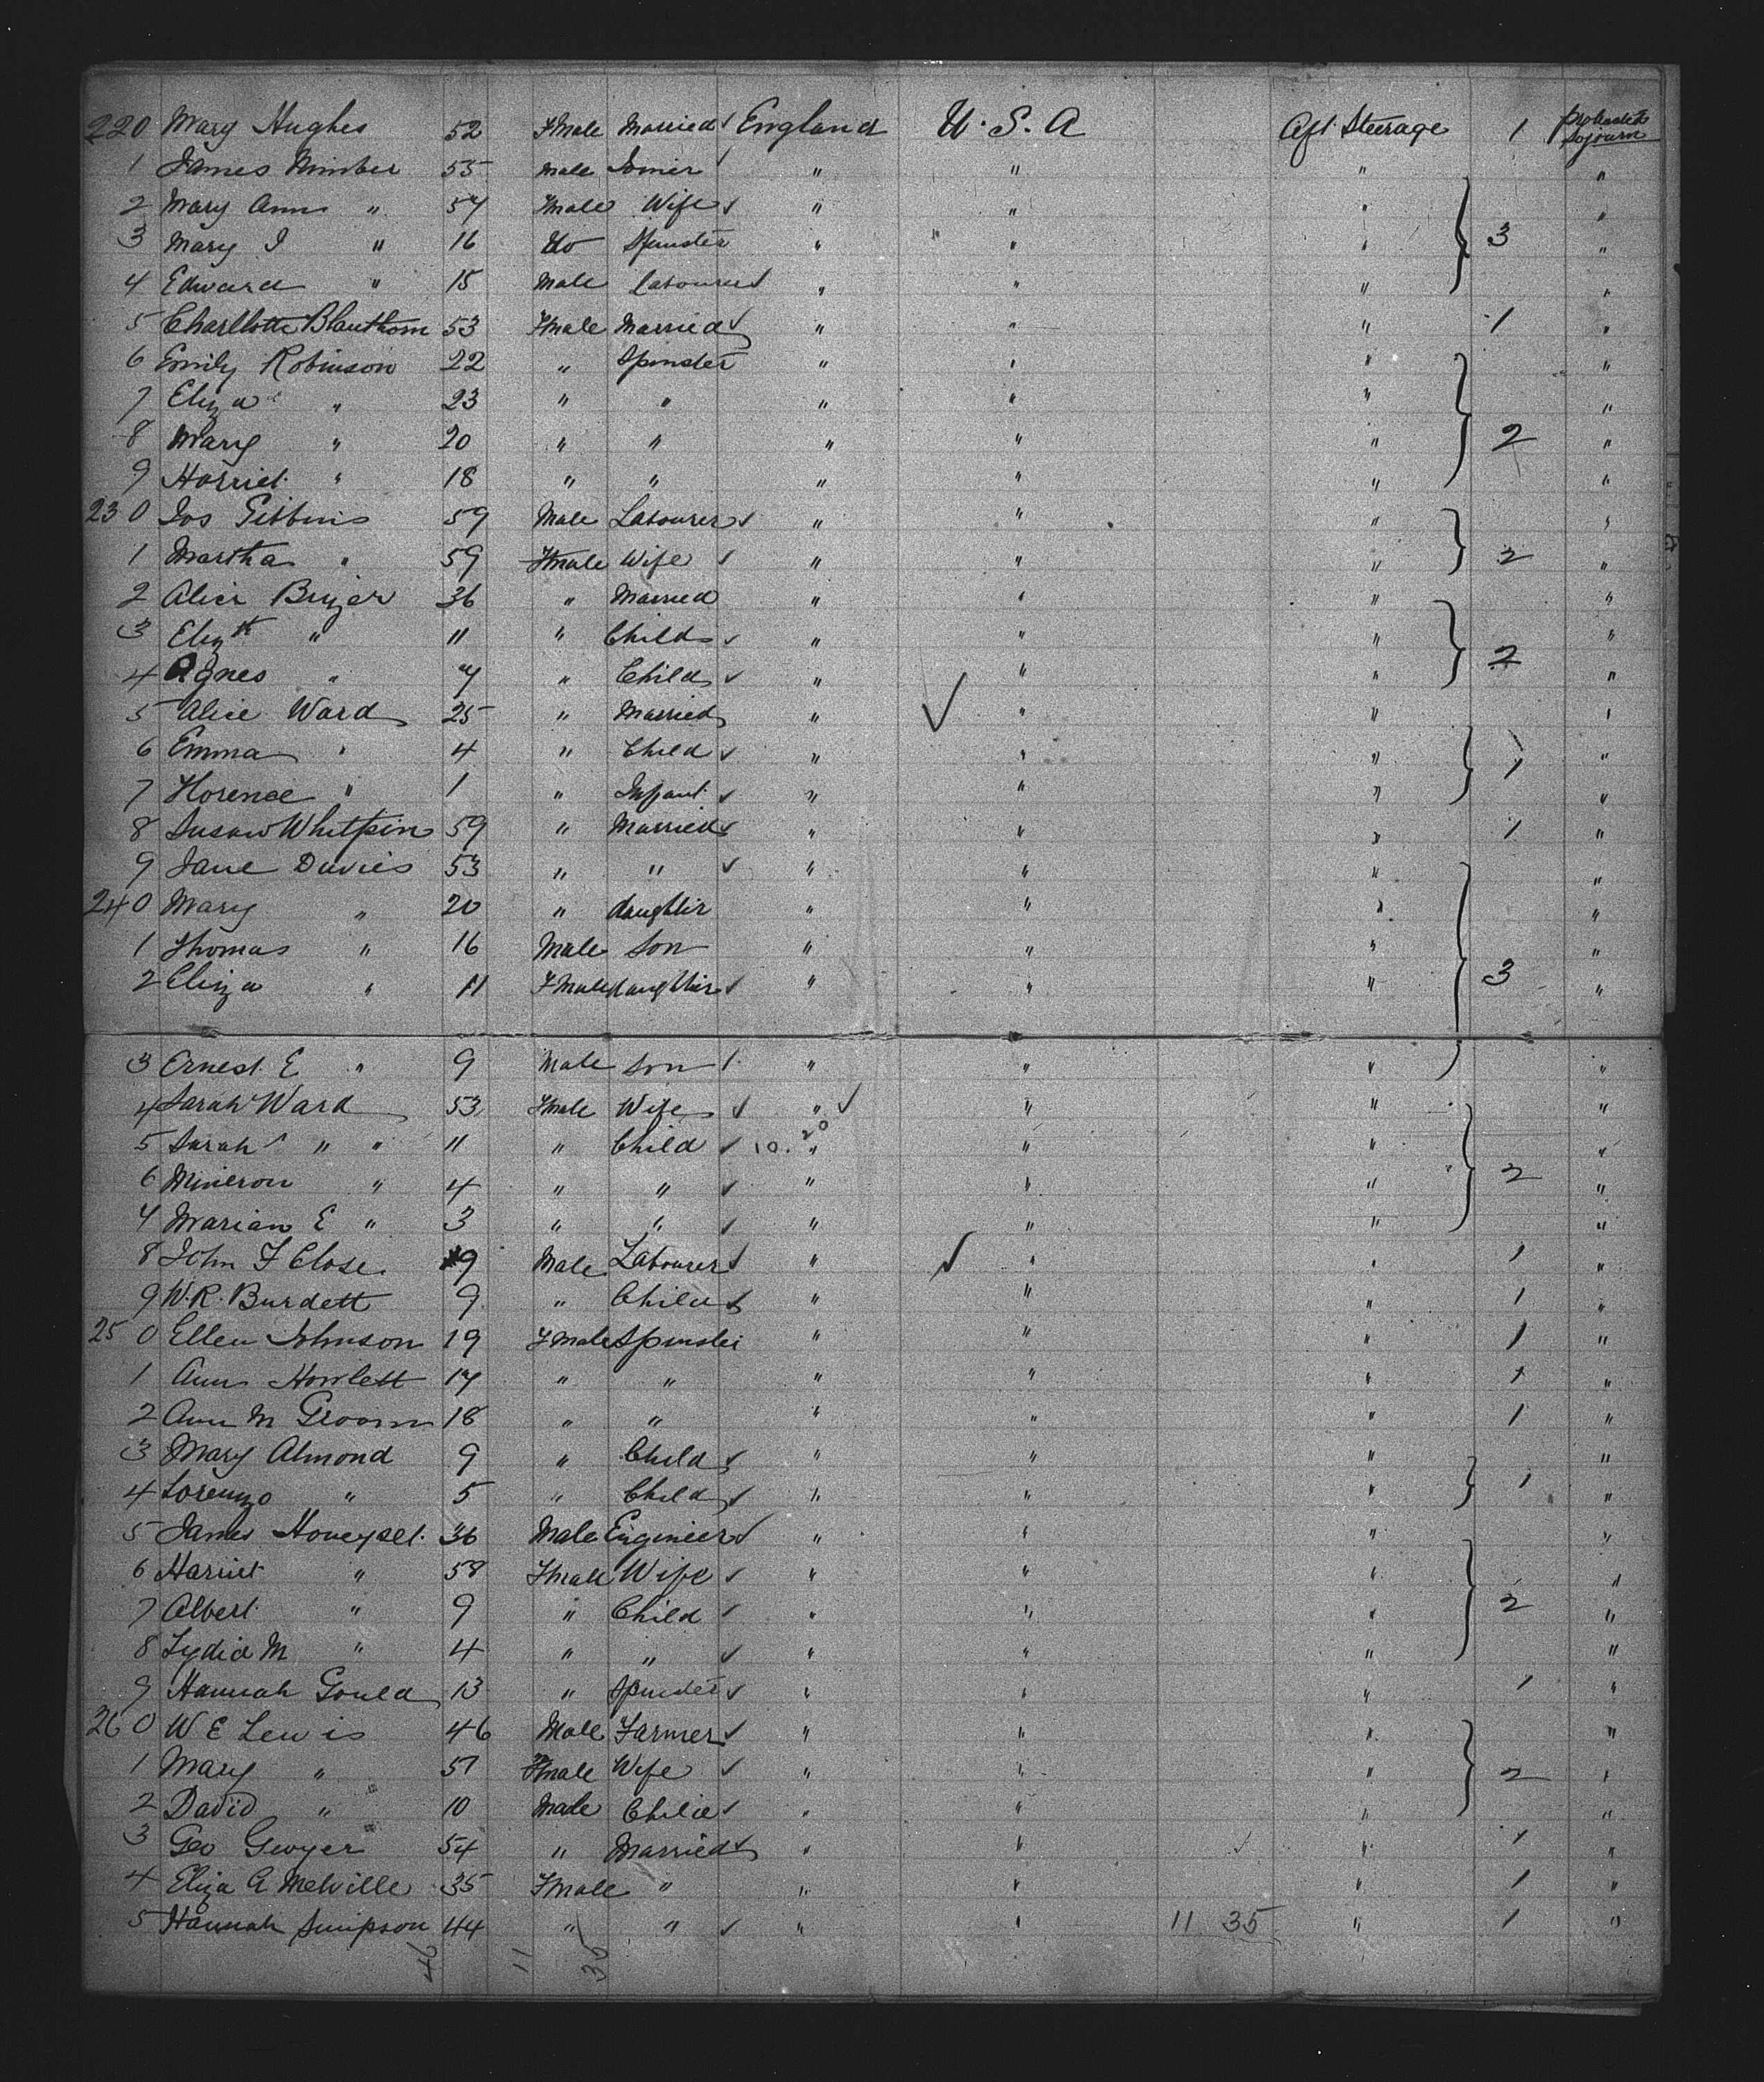 220 Mary Hughes 52 Fmale Married England U.S.A Aft Steerage 1 Sojourn
1 James Nimber 55 Male Joiner " " " "
2 Mary Ann " 54 Fmale Wife " " " "
3 Mary J " 16 do Spinster " " " 3 "
4 Edward " 15 Male Labourer " " " "
5 Charllotte Blauthorn 53 Fmale Married " " " 1 "
6 Emily Robinson 22 " Spinster " " " "
7 Eliza " 23 " " " " " "
8 Mary " 20 " " " " " 2 "
9 Harriet " 18 " " " " " "
230 Jos Gibbins 59 Male Labourer " " " "
1 Martha " 59 Fmale Wife " " " 2 "
2 Alice 36 " Married " " " "
3 Elizth " 11 " Child " " " "
4 Agnes " 7 " Child " " " 2 "
5 Alice Ward 25 " Married " " " "
6 Emma " 4 " Child " " " "
7 Florence " 1 " Infant " " " 1 "
8 Susan 59 " Married " " " 1 "
9 Jane Davies 53 " " " " " "
240 Mary " 20 " daughter " " " "
1 Thomas " 16 Male Son " " " "
2 Eliza " 11 Fmale daughter " " " 3 "
3 Ernest E " 9 Male Son " " " "
4 Sarah Ward 53 Fmale Wife " " " "
5 Sarah " " 11 " Child 10. 20 " " " "
6 " 4 " " " " " 2 "
7 Marian E " 3 " " " " " "
8 John F Close 9 Male Labourer " " " 1 "
9 W.R. Burdett 9 " Child " " " 1 "
250 Ellen Johnson 19 Fmale Spinster " " " 1 "
1 Ann Howlett 17 " " " " " 1 "
2 Ann M Groom 18 " " " " " 1 "
3 Mary Almond 9 " Child " " " "
4 Lorenzo " 5 " Child " " " 1 "
5 James Honeyset 36 Male Engineer " " " "
6 Harriet " 58 Fmale Wife " " " "
7 Albert " 9 " Child " " " 2 "
8 Lydia M " 4 " " " " " "
9 Hannah Gould 13 " Spinster " " " 1 "
260 W E Lewis 46 Male Farmer " " " "
1 Mary " 51 Fmale Wife " " " 2 "
2 David " 10 Male Child " " " "
3 Geo Gwyer 54 " Married " " " 1 "
4 Eliza A Melville 35 Fmale " " " " 1 "
5 Hannah Simpson 44 " " " " 11 35 " 1 "
46 11 35